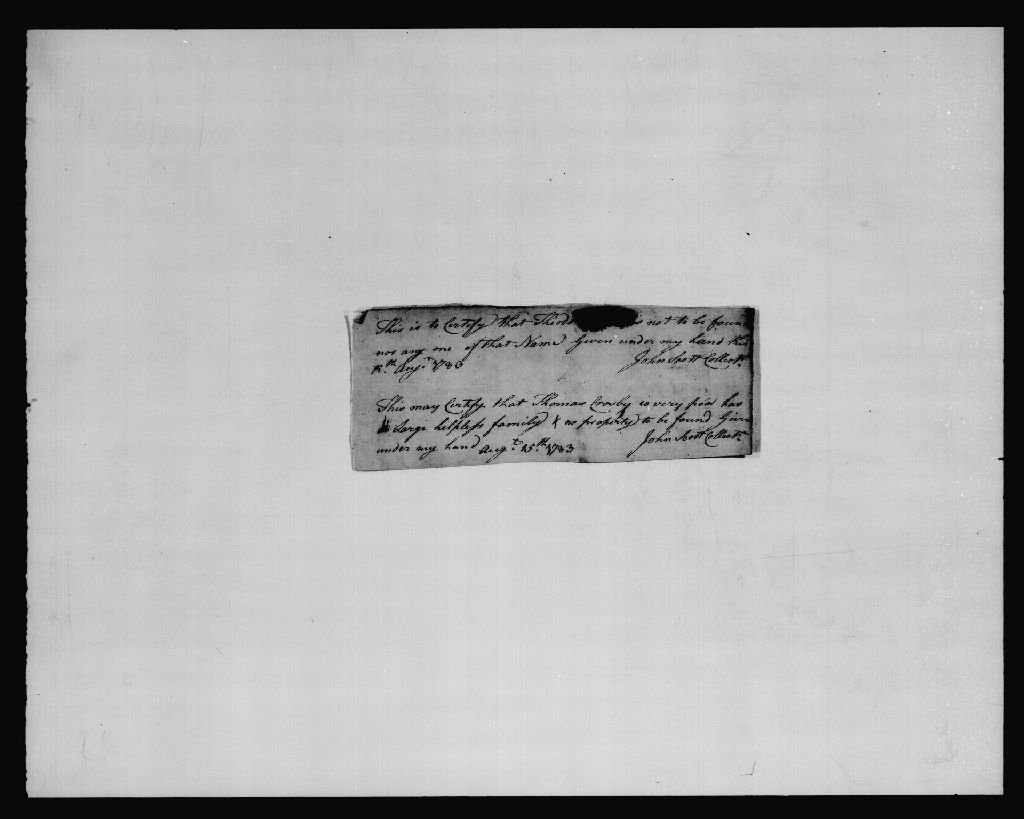 This is to Certify that not to be found
nor any one of that Name Given under my hand this
15th Augt 1783 John Scott Collectr
This may Certify that Thomas Crosby is very poor has
a large helpless family & no property to be found Given
under my hand Augt 15th 1783 John Scott Collectr